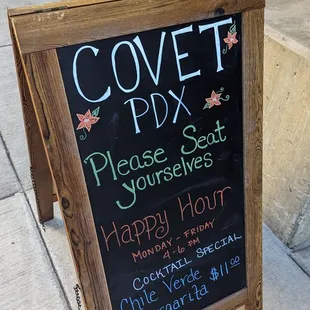 COVET
PDX
Please Seat
yourselves
Happy Hour
MONDAY - FRIDAY
4-6 PM
COCKTAIL SPECIAL
Chile Verde $11.00